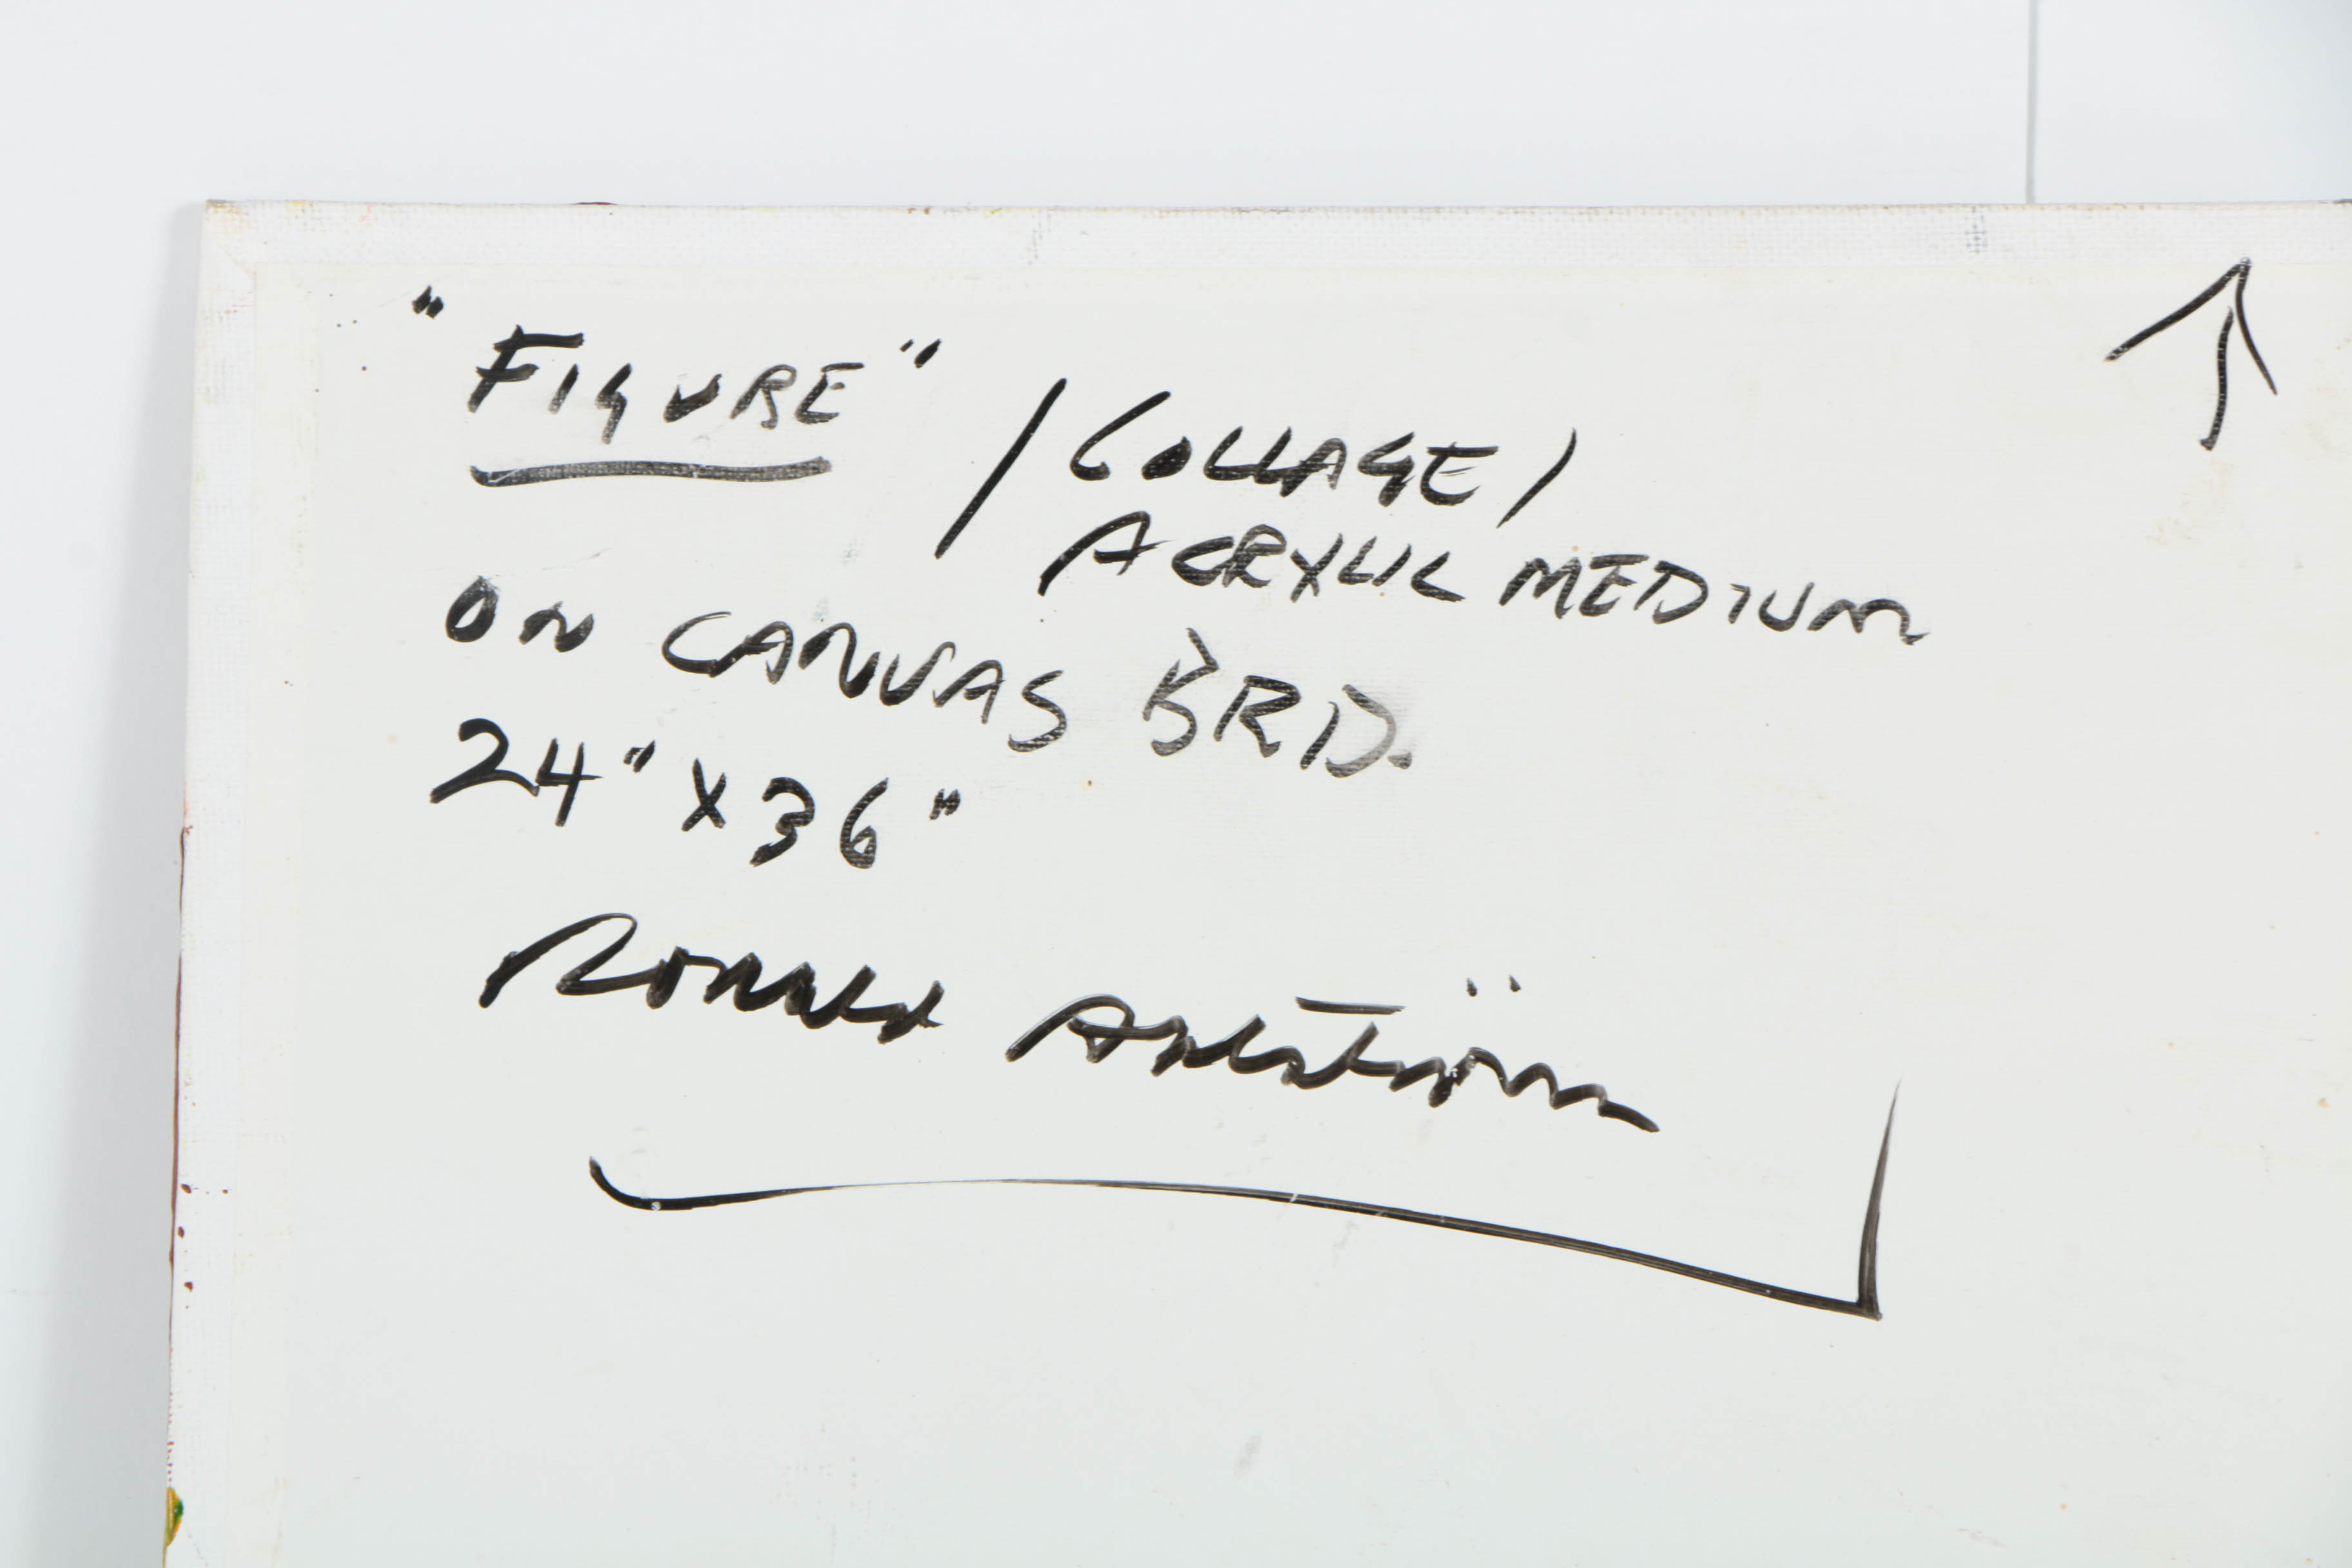 "FIGURE" / COLLAGE /
ACRYLIC MEDIUM
ON CANVAS BRD.
24" X 36"
Ronald